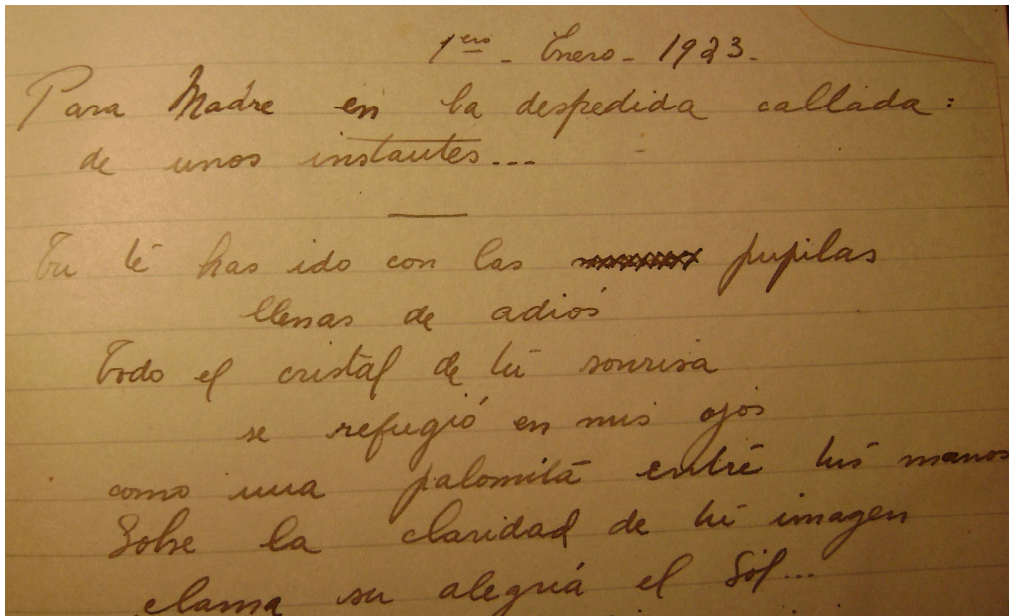 1ero - Enero - 1923.
Para Madre en la despedida callada:
de unos instantes...
Tu té has ido con las pupilas
llenas de adiós
Todo el cristal de tú sonrisa
se refugió en mis ojos
como una palomita entre tus manos
Sobre la claridad de tú imagen
clama su alegría el Sol...